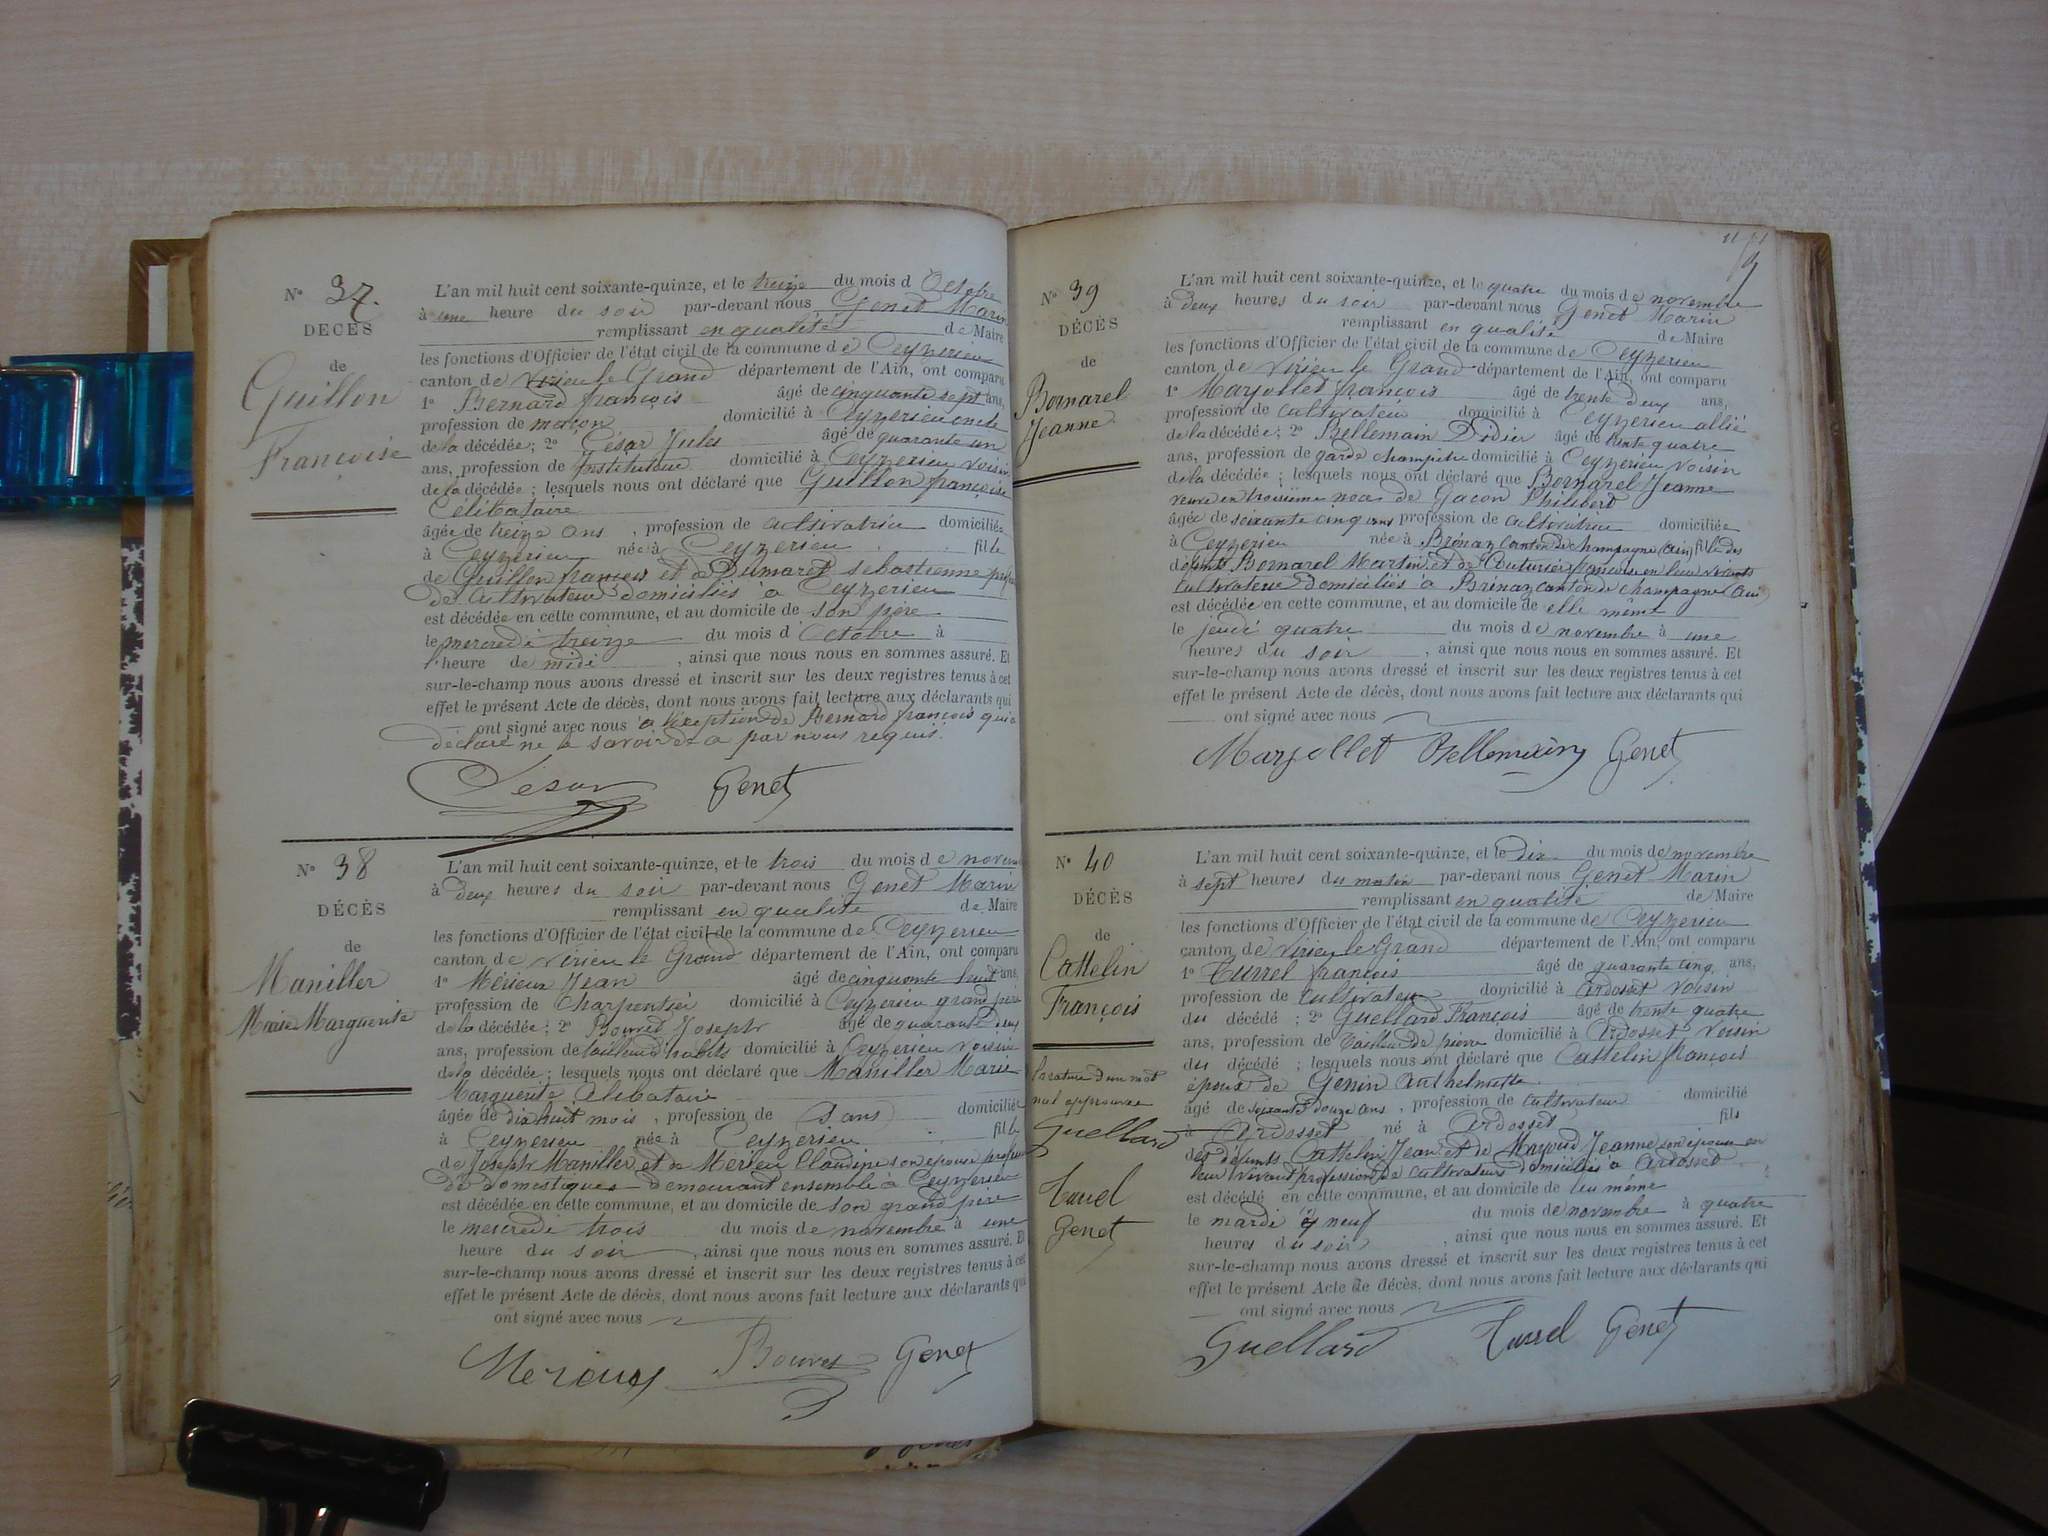 N° 37.
DÉCÈS
de
Guillon
Françoise
L'an mil huit cent soixante-quinze, et le treize du mois d'Octobre
à une heure du soir par-devant nous Genet Marin
remplissant en qualité de Maire
les fonctions d'Officier de l'état civil de la commune de Ceyzerieu
canton de Virieu le Grand département de l'Ain, ont comparu
1° Bernard françois âgé de cinquante sept ans,
profession de maçon domicilié à Ceyzerieu oncle
de la décédée; 2° César Jules âgé de quarante un
ans, profession de Instituteur domicilié à Ceyzerieu voisin
de la décédée; lesquels nous ont déclaré que Guillon françoise
Célibataire
âgée de treize ans, profession de cultivatrice domiciliée
à Ceyzerieu née à Ceyzerieu fille
de Guillon françois et de Dumarest sebastienne
de cultivateurs domiciliés à Ceyzerieu
est décédée en cette commune, et au domicile de son père
le mercredi treize du mois d'Octobre à
l'heure de midi, ainsi que nous nous en sommes assuré. Et
sur-le-champ nous avons dressé et inscrit sur les deux registres tenus à cet
effet le présent Acte de décès, dont nous avons fait lecture aux déclarants qui
ont signé avec nous à l'éxeption de Bernard françois qui a
déclaré ne le savoir de a par nous requis.
César Genet
N° 38
DÉCÈS
de
Maniller
Marie Marguerite
L'an mil huit cent soixante-quinze, et le trois du mois de novem
à deux heures du soir par-devant nous Genet Marin
remplissant en qualité de Maire
les fonctions d'Officier de l'état civil de la commune de Ceyzerieu
canton de Virieu le Grand département de l'Ain, ont comparu
1° Mérieux Jean âgé de cinquante huit ans,
profession de Charpentier domicilié à Ceyzerieu grand père
de la décédée; 2° Bouvet Joseph âgé de quarante deux
ans, profession de tailleur d'habits domicilié à Ceyzerieu voisin
de la décédée; lesquels nous ont déclaré que Maniller Marie
Marguerite Célibataire
âgée de dix huit mois, profession de (sans) domiciliée
à Ceyzerieu née à Ceyzerieu fille
de Joseph Maniller et de Mérieu Claudine son épouse
de domestiques demeurant ensemble à Ceyzerieu
est décédée en cette commune, et au domicile de son grand père
le mercredi trois du mois de novembre à une
heure du soir, ainsi que nous nous en sommes assuré. Et
sur-le-champ nous avons dressé et inscrit sur les deux registres tenus à cet
effet le présent Acte de décès, dont nous avons fait lecture aux déclarants qui
ont signé avec nous
Merieux Bouvet Genet
N° 39
DÉCÈS
de
Bornarel
Jeanne
L'an mil huit cent soixante-quinze, et le quatre du mois de novembre
à deux heures du soir par-devant nous Genet Marin
remplissant en qualité de Maire
les fonctions d'Officier de l'état civil de la commune de Ceyzerieu
canton de Virieu le Grand département de l'Ain, ont comparu
1° Marjollet françois âgé de trente deux ans,
profession de cultivateur domicilié à Ceyzerieu allié
de la décédée; 2° Bellemain Didier âgé de trente quatre
ans, profession de garde champêtre domicilié à Ceyzerieu voisin
de la décédée; lesquels nous ont déclaré que Bornarel Jeanne
veuve en troisième noces de Gacon Philibert
âgée de soixante cinq ans profession de cultivatrice domiciliée
à Ceyzerieu née à Brénaz canton de Champagne (Ain) fille des
défunts Bornarel Martin et de Couturier françoise en leur vivants
cultivateurs domiciliés à Brénaz canton de Champagne (Ain)
est décédée en cette commune, et au domicile de elle même
le jeudi quatre du mois de novembre à une
heures du soir, ainsi que nous nous en sommes assuré. Et
sur-le-champ nous avons dressé et inscrit sur les deux registres tenus à cet
effet le présent Acte de décès, dont nous avons fait lecture aux déclarants qui
ont signé avec nous
Marjollet Bellemain Genet
N° 40
DÉCÈS
de
Cattelin
François
la rature d'un mot
nul approuvée
Guellard
Turrel
Genet
L'an mil huit cent soixante-quinze, et le dix du mois de novembre
à sept heures du matin par-devant nous Genet Marin
remplissant en qualité de Maire
les fonctions d'Officier de l'état civil de la commune de Ceyzerieu
canton de Virieu le Grand département de l'Ain, ont comparu
1° Turrel françois âgé de quarante cinq ans,
profession de cultivateur domicilié à Ardosset voisin
du décédé; 2° Guellard François âgé de trente quatre
ans, profession de Tailleur de pierre domicilié à Ardosset voisin
du décédé; lesquels nous ont déclaré que Cattelin françois
époux de Genin Anthelmette
âgé de soixante douze ans, profession de cultivateur domicilié
à Ardosset né à Ardosset fils
des défunts Cattelin Jean et de Jeanne son épouse en
leur vivant profession de cultivateurs domiciliés à Ardosset
est décédé en cette commune, et au domicile de lui même
le mardi neuf du mois de novembre à quatre
heures du soir, ainsi que nous nous en sommes assuré. Et
sur-le-champ nous avons dressé et inscrit sur les deux registres tenus à cet
effet le présent Acte de décès, dont nous avons fait lecture aux déclarants qui
ont signé avec nous
Guellard Turrel Genet